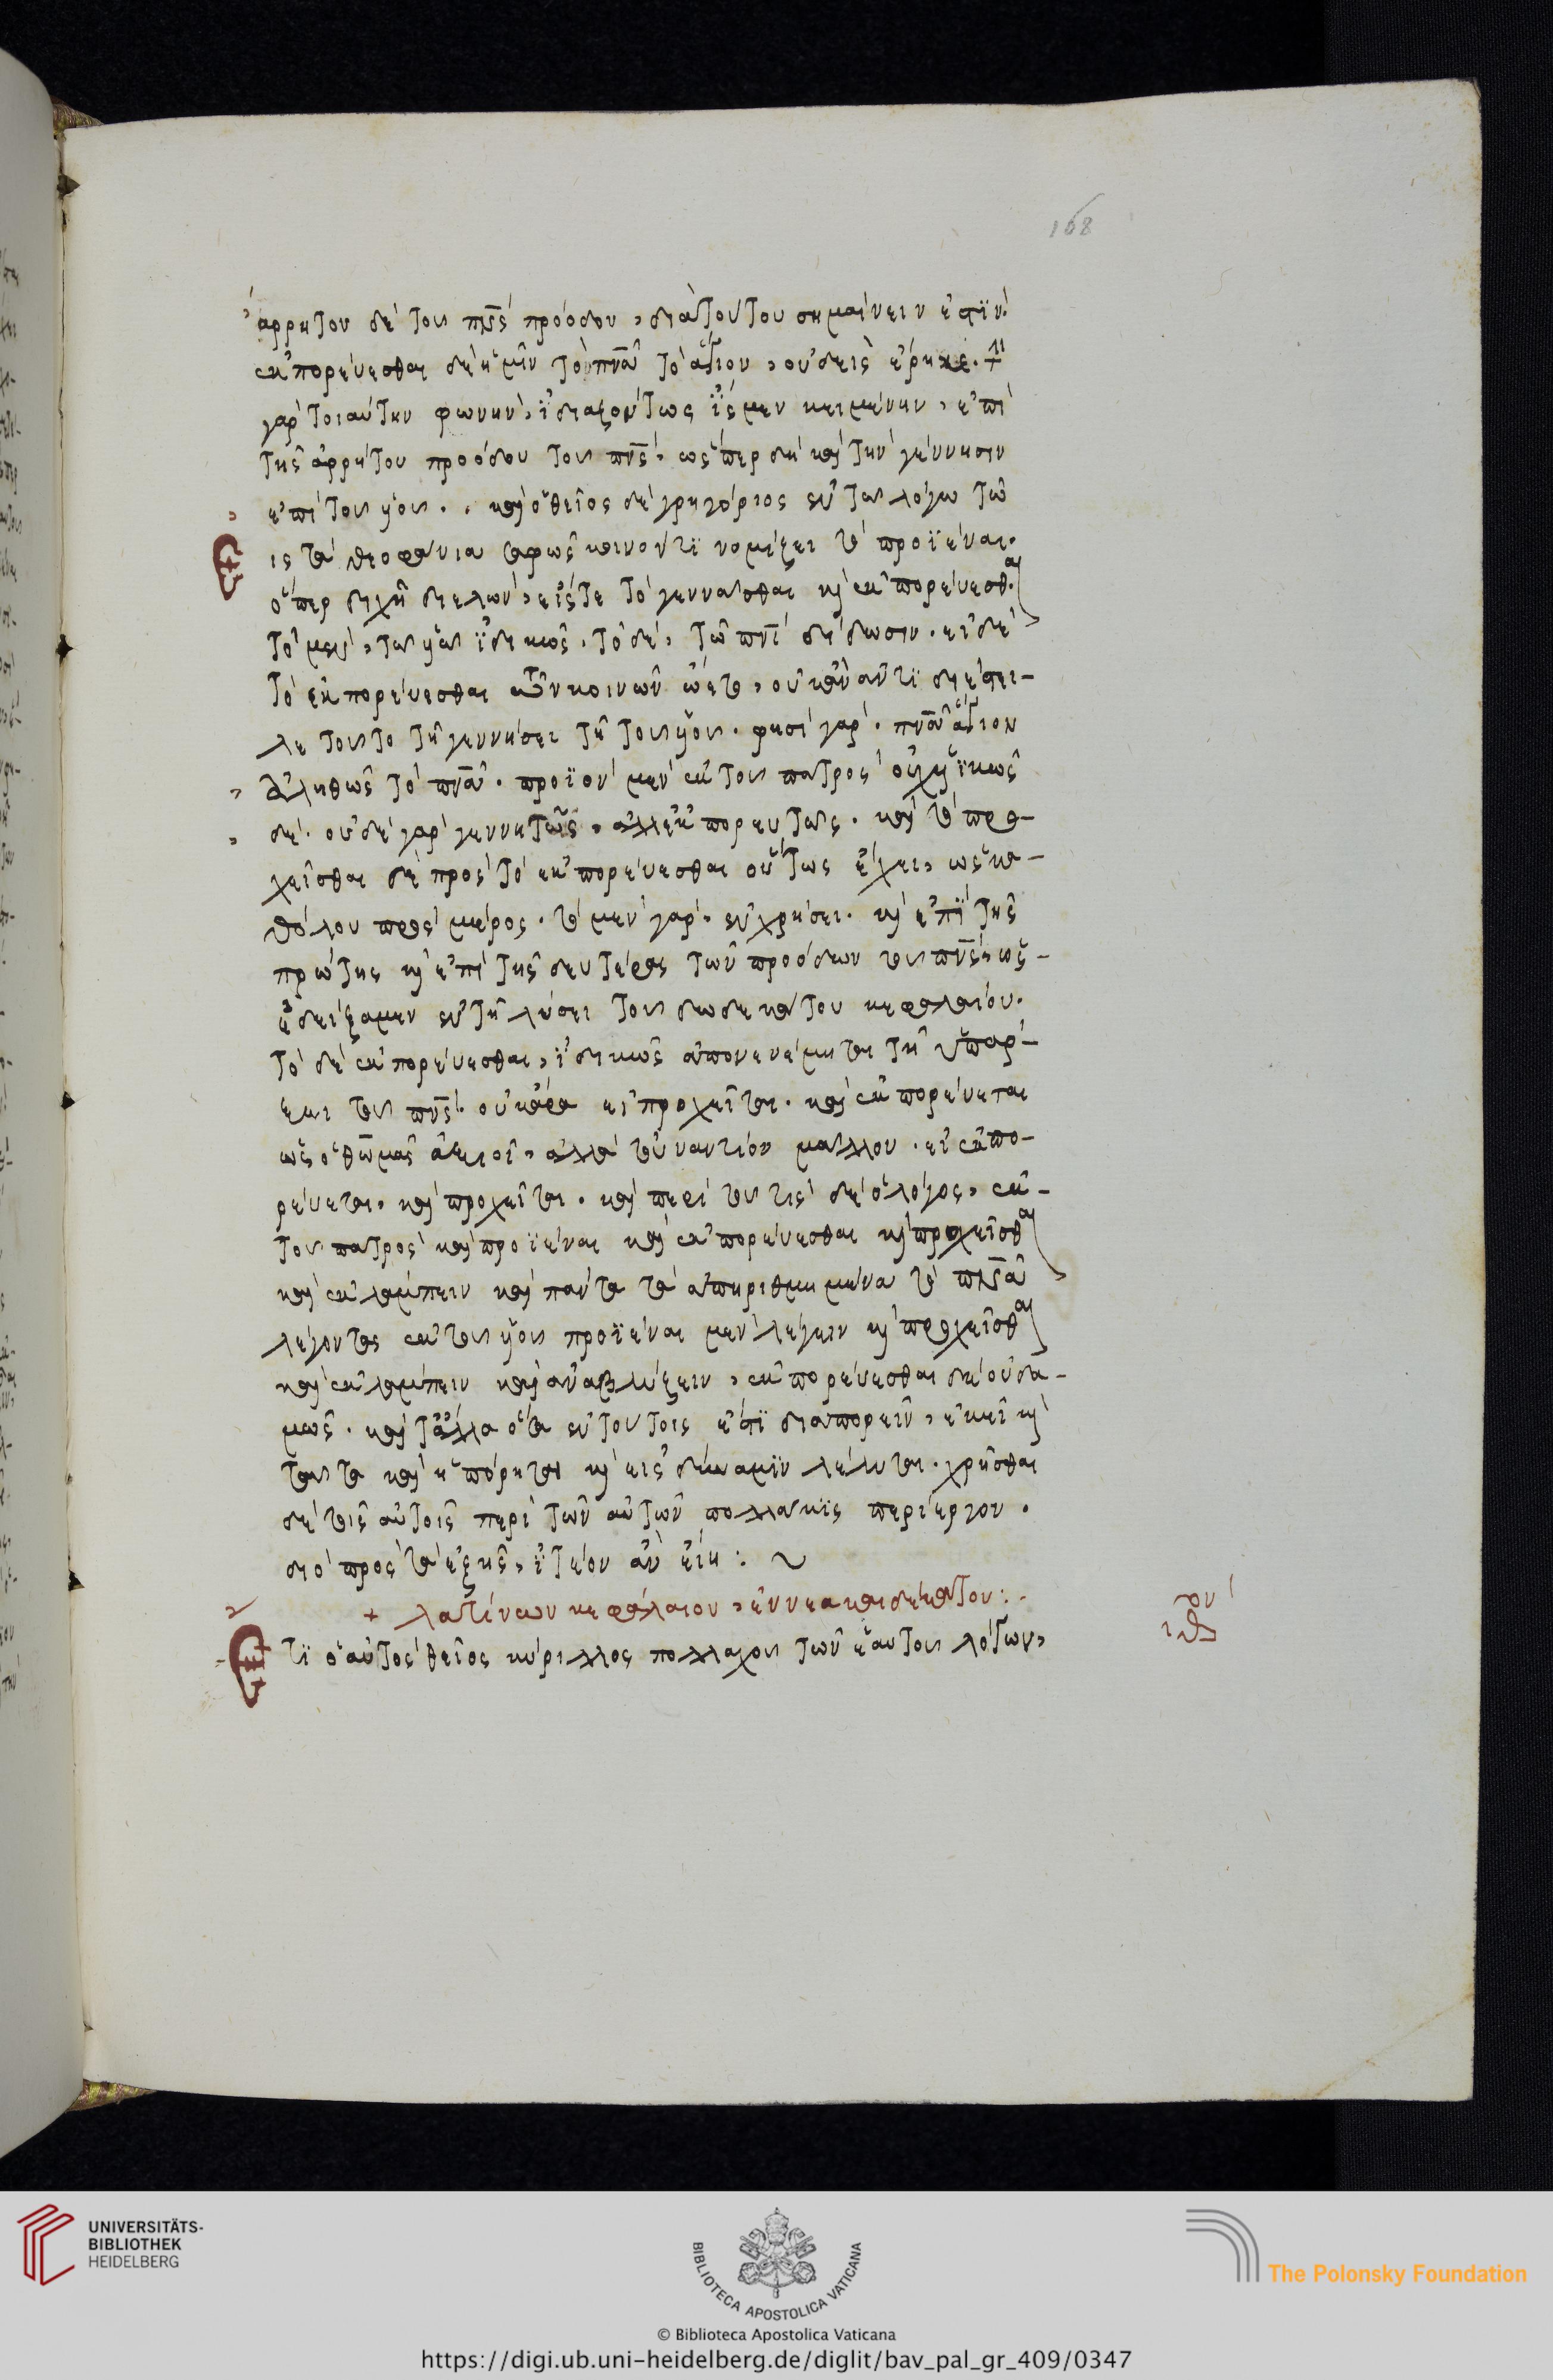 168
ἄρρητον δὲ τοῦ πν̅ς πρόοδον, διὰ τούτου σημαίνειν ἐστὶν.
ἐκπορεύεσθαι δὲ ἡμῖν τὸ πν̅α τὸ ἅγιον, οὐδεὶς εἴρηκε. τὴν
γὰρ τοιαύτην φωνὴν, ἰδιαζόντως ἴσμεν κειμένην, ἐπὶ
τῆς ἀρρήτου προόδου τοῦ πν̅ς. ὥσπερ δὴ καὶ τὴν γέννησιν
ἐπὶ τοῦ υἱοῦ. καὶ ὁ θεῖος δὲ γρηγόριος ἐν τῶ λόγω τῶ
εἰς τὰ θεοφάνια σαφῶς κοινόν τι νομίζει τὸ προϊέναι.
ὅπερ διχῆ διελὼν, εἴς τε τὸ γεννᾶσθαι καὶ ἐκπορεύεσθαι
τὸ μὲν, τῶ υἱῶ ἰδικῶς. τὸ δὲ, τῶ πν̅ι δίδωσιν. εἰ δὲ
τὸ ἐκπορεύεσθαι τῶν κοινῶν ὤετο, οὐκ ἂν ἀντιδιέστει-
λε τοῦτο τῆ γεννήσει τῆ τοῦ υἱοῦ. φησὶ γὰρ. πν̅α ἅγιον
ἀληθῶς τὸ πν̅α. προϊὸν μὲν ἐκ τοῦ πατρὸς οὐχ υἱικῶς
δέ. οὐδὲ γὰρ γεννητῶς, ἀλλ' ἐκπορευτῶς. καὶ τὸ προ-
χεῖσθαι δὲ πρὸς τὸ ἐκπορεύεσθαι οὕτως ἔχει, ὡς κα-
θόλου πρὸς μέρος. τὸ μὲν γὰρ, ἐν χρήσει. καὶ ἐπὶ τῆς
πρώτης καὶ ἐπὶ τῆς δευτέρας τῶν προόδων τοῦ πν̅ς, ὡς
ἐδείξαμεν ἐν τῆ λύσει τοῦ δωδεκάτου κεφαλαίου.
τὸ δὲ ἐκπορεύεσθαι, ἰδικῶς ἀπονενέμηται τῆ ὑπάρ-
ξει τοῦ πν̅ς. οὐκ ἄρα εἰ προχεῖται. καὶ ἐκπορεύεται
ὡς ὁ θωμᾶς ἀξιοῖ, ἀλλὰ τοὐναντίον μᾶλλον. εἰ ἐκπο-
ρεύεται, καὶ προχεῖται. καὶ περὶ τοῦ τις δὲ ὁ λόγος, ἐκ
τοῦ πατρὸς καὶ προϊέναι καὶ ἐκπορεύεσθαι καὶ προχεῖσθαι
καὶ ἐκλάμπειν καὶ πάντα τὰ ἀπηριθμημένα τὸ πν̅α
λέγοντας ἐκ τοῦ υἱοῦ προϊέναι μὲν λέγειν καὶ προχεῖσθαι
καὶ ἐκλάμπειν καὶ ἀναβλύζειν, ἐκπορεύεσθαι δὲ οὐδα-
μῶς. καὶ τἄλλα ὅσα ἐν τούτοις ἔστι διαπορεῖν, ἐκεῖ καὶ
ταῦτα καὶ ἠπόρηται καὶ εἰς δύναμιν λέλυται. χρῆσθαι
δὲ τοῖς αὐτοῖς περὶ τῶν αὐτῶν πολλάκις περίεργον.
διὸ πρὸς τὰ ἑξῆς, ἰτέον ἂν εἴη: ~
+ λατίνων κεφάλαιον, ἐννεακαιδέκατον:
Ἔτι ὁ αὐτὸς θεῖος κύριλλος πολλαχοῦ τῶν ἑαυτοῦ λόγων,
ιθ
UNIVERSITÄTS-
BIBLIOTHEK
HEIDELBERG
BIBLIOTECA APOSTOLICA VATICANA
The Polonsky Foundation
© Biblioteca Apostolica Vaticana
https://digi.ub.uni-heidelberg.de/diglit/bav_pal_gr_409/0347